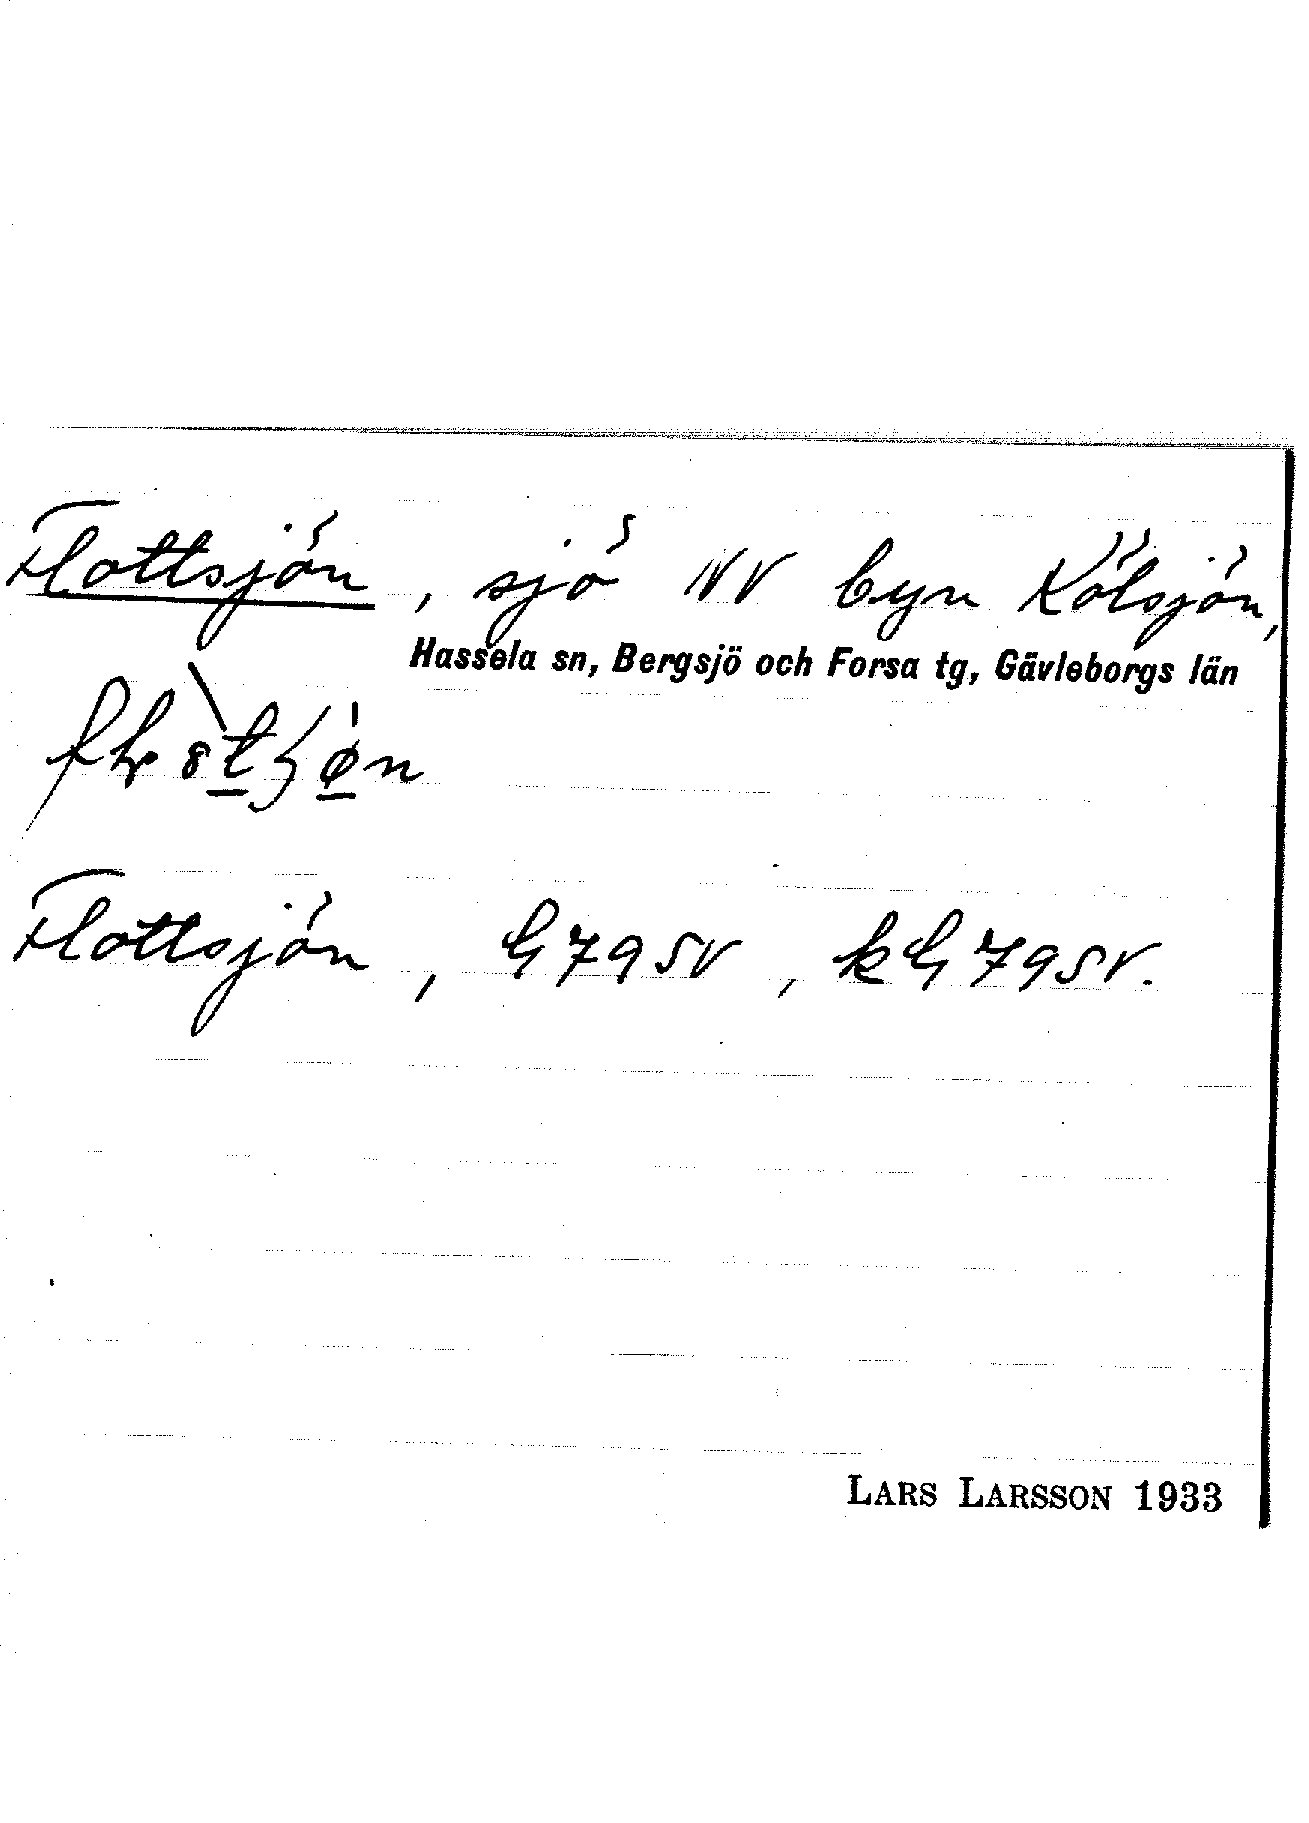 Flottsjön, sjö NV byn Kölsjön,
Hassela sn, Bergsjö och Forsa tg, Gävleborgs län
Flottsjön, G79SV, kG79SV.
LARS LARSSON 1933